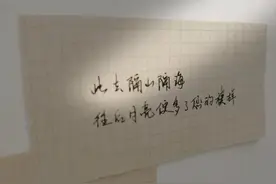 此去隔山隔海
往后月亮便多了你的模样